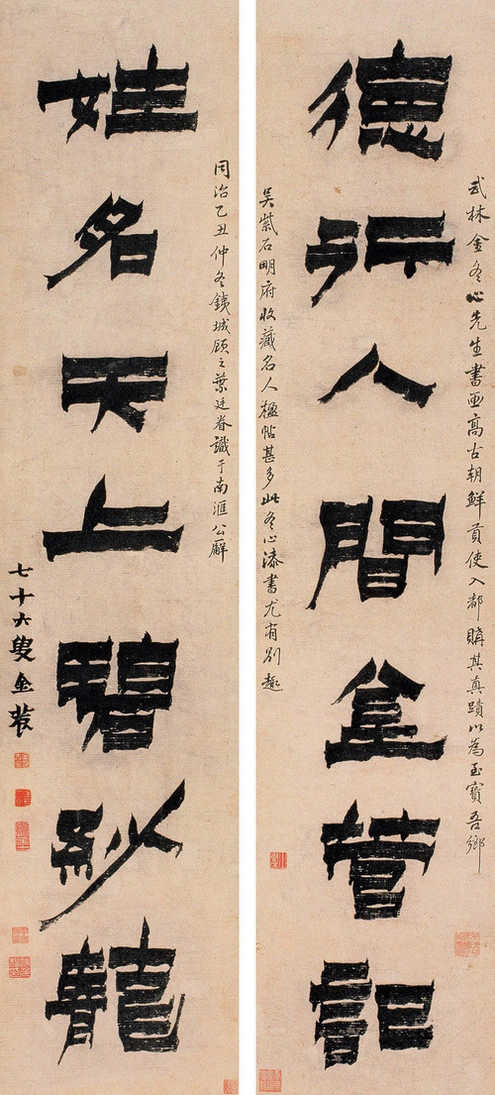 武林金冬心先生書画高古朝鮮貢使入都購其真蹟以為至寶吾鄉
德行人間金管記
吳紫石明府收藏名人楹帖甚多此冬心漆書尤有別趣
同治乙丑仲冬銕城顧之葉廷眷識于南滙公廨
姓名天上碧紗籠
七十六叟金農